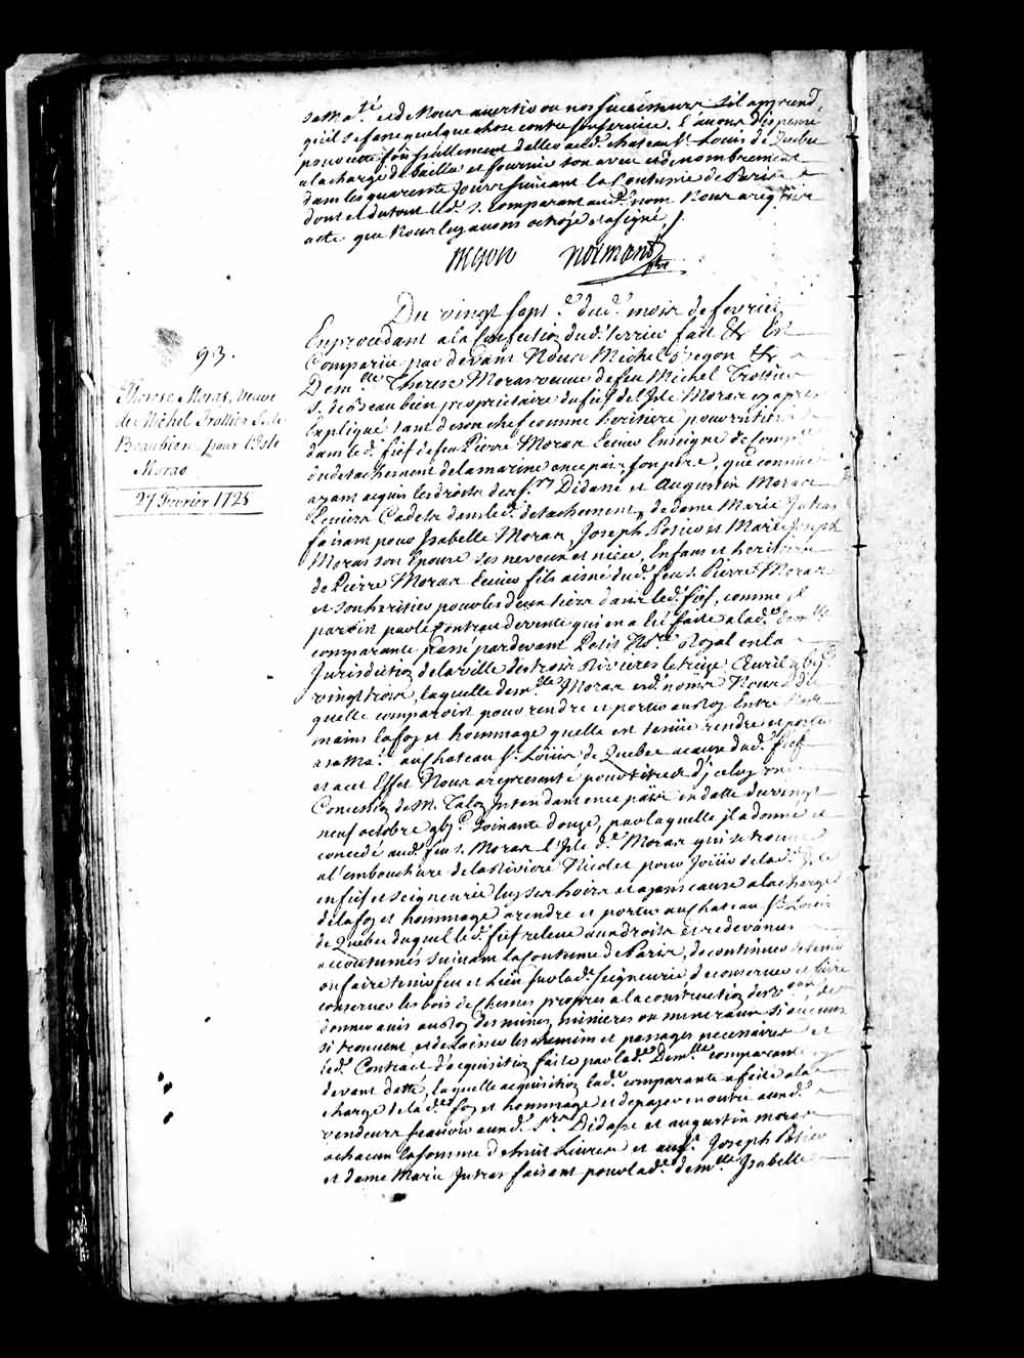 sa Ma.té et de Nous avertir ou nos successeurs s'il apprend
qu'il se fasse quelque chose contre son service. L'avons dispensé
pour cette fois seullement d'aller aud. chateau St Louis de Quebec
a la charge de bailler et fournir son aveu et denombrement
dans les quarente jours suivant la Coutume de Paris
dont et du tout led. S. comparant aud. nom Nous a requis
acte que Nous luy avons octroyé et a signé /.
Begon Normandin
Du vingt sept.e dud. mois de fevrier
En procedant a la Confection dud. terrier fait &c Est
Comparüe par devant Nous Michel Begon &c
Dem.lle Therese Moras veuve de feu Michel Trottier
S. de Beaubien proprietaire du fief de l'Isle Moras cy apres
Expliqué tant de son chef comme heritiere pour un tiers
dans led. fief de feu Pierre Moras Ecuier Enseigne de Comp.
du detachement de la marine en ce païs son pere, que comme
ayant acquis les droits des S.rs Didace et Augustin Moras
Ecuiers Cadets dans led. detachement, de dame Marie Jutras
faisant pour Isabelle Moras, Joseph Potier et Marie Joseph
Moras son Epouse ses neveux et niece, Enfans et heritiers
de Pierre Moras Ecuier fils aisné dud. feu S. Pierre Moras
et son heritier pour les deux tiers dans led. fief, comme il
paroist par le Contrat de vente qui en a été faite a lad. dem.lle
comparante passé pardevant Petit No.re Royal en la
Jurisdiction de la ville des trois Rivieres le treize Avril gbij.c
vingt trois, laquelle dem.lle Moras esd. noms Nous a dit
quelle comparoist pour rendre et porter au Roy Entre Nos
mains la foy et hommage quelle est tenüe rendre et porter
a sa Ma.té au Chateau St Loüis de Quebec a cause dud. fief
et a cet Effet Nous a representé pour titre d'jceluy une
Concession de M. Talon Intendant en ce païs en datte du vingt
neuf octobre gbj.c soixante douze, par laquelle jl a donné et
concedé aud. feu S. Moras l'Isle d. Moras qui se trouve
a l'embouchure de la Riviere Nicolet pour joüir de lad. Isle
en fief et seigneurie luy ses hoirs et ayans cause a la charge
de la foy et hommage a rendre et porter au Chateau St Louis
de Quebec duquel led. fief releve aux droits et redevances
accoutumés suivant la Coutume de Paris, de continuer de tenir
ou faire tenir feu et Lieu sur lad. seigneurie, de conserver et faire
conserver les bois de Chesnes propres a la construction des vx.aux, de
donner avis au Roy des mines, minieres ou mineraux si aucuns
si trouvent, et de laisser les chemins et passages necessaires et
led. Contract d'acquisition faite par lad. Dem.lle comparante cy
devant datté, laquelle acquisition lad. comparante a faite a la
charge de lad. foy et hommage et de payer en outre aud.
vendeurs scavoir aux d. S.rs Didace et augustin moras
a chacun la somme de huit Livres et aud. Joseph Potier
et dame Marie Jutras faisant pour lad. dem.lle Isabelle
93.
Therese Moras, veuve
de Michel Trottier S. de
Beaubien pour l'Isle
Moras
27 Fevrier 1725